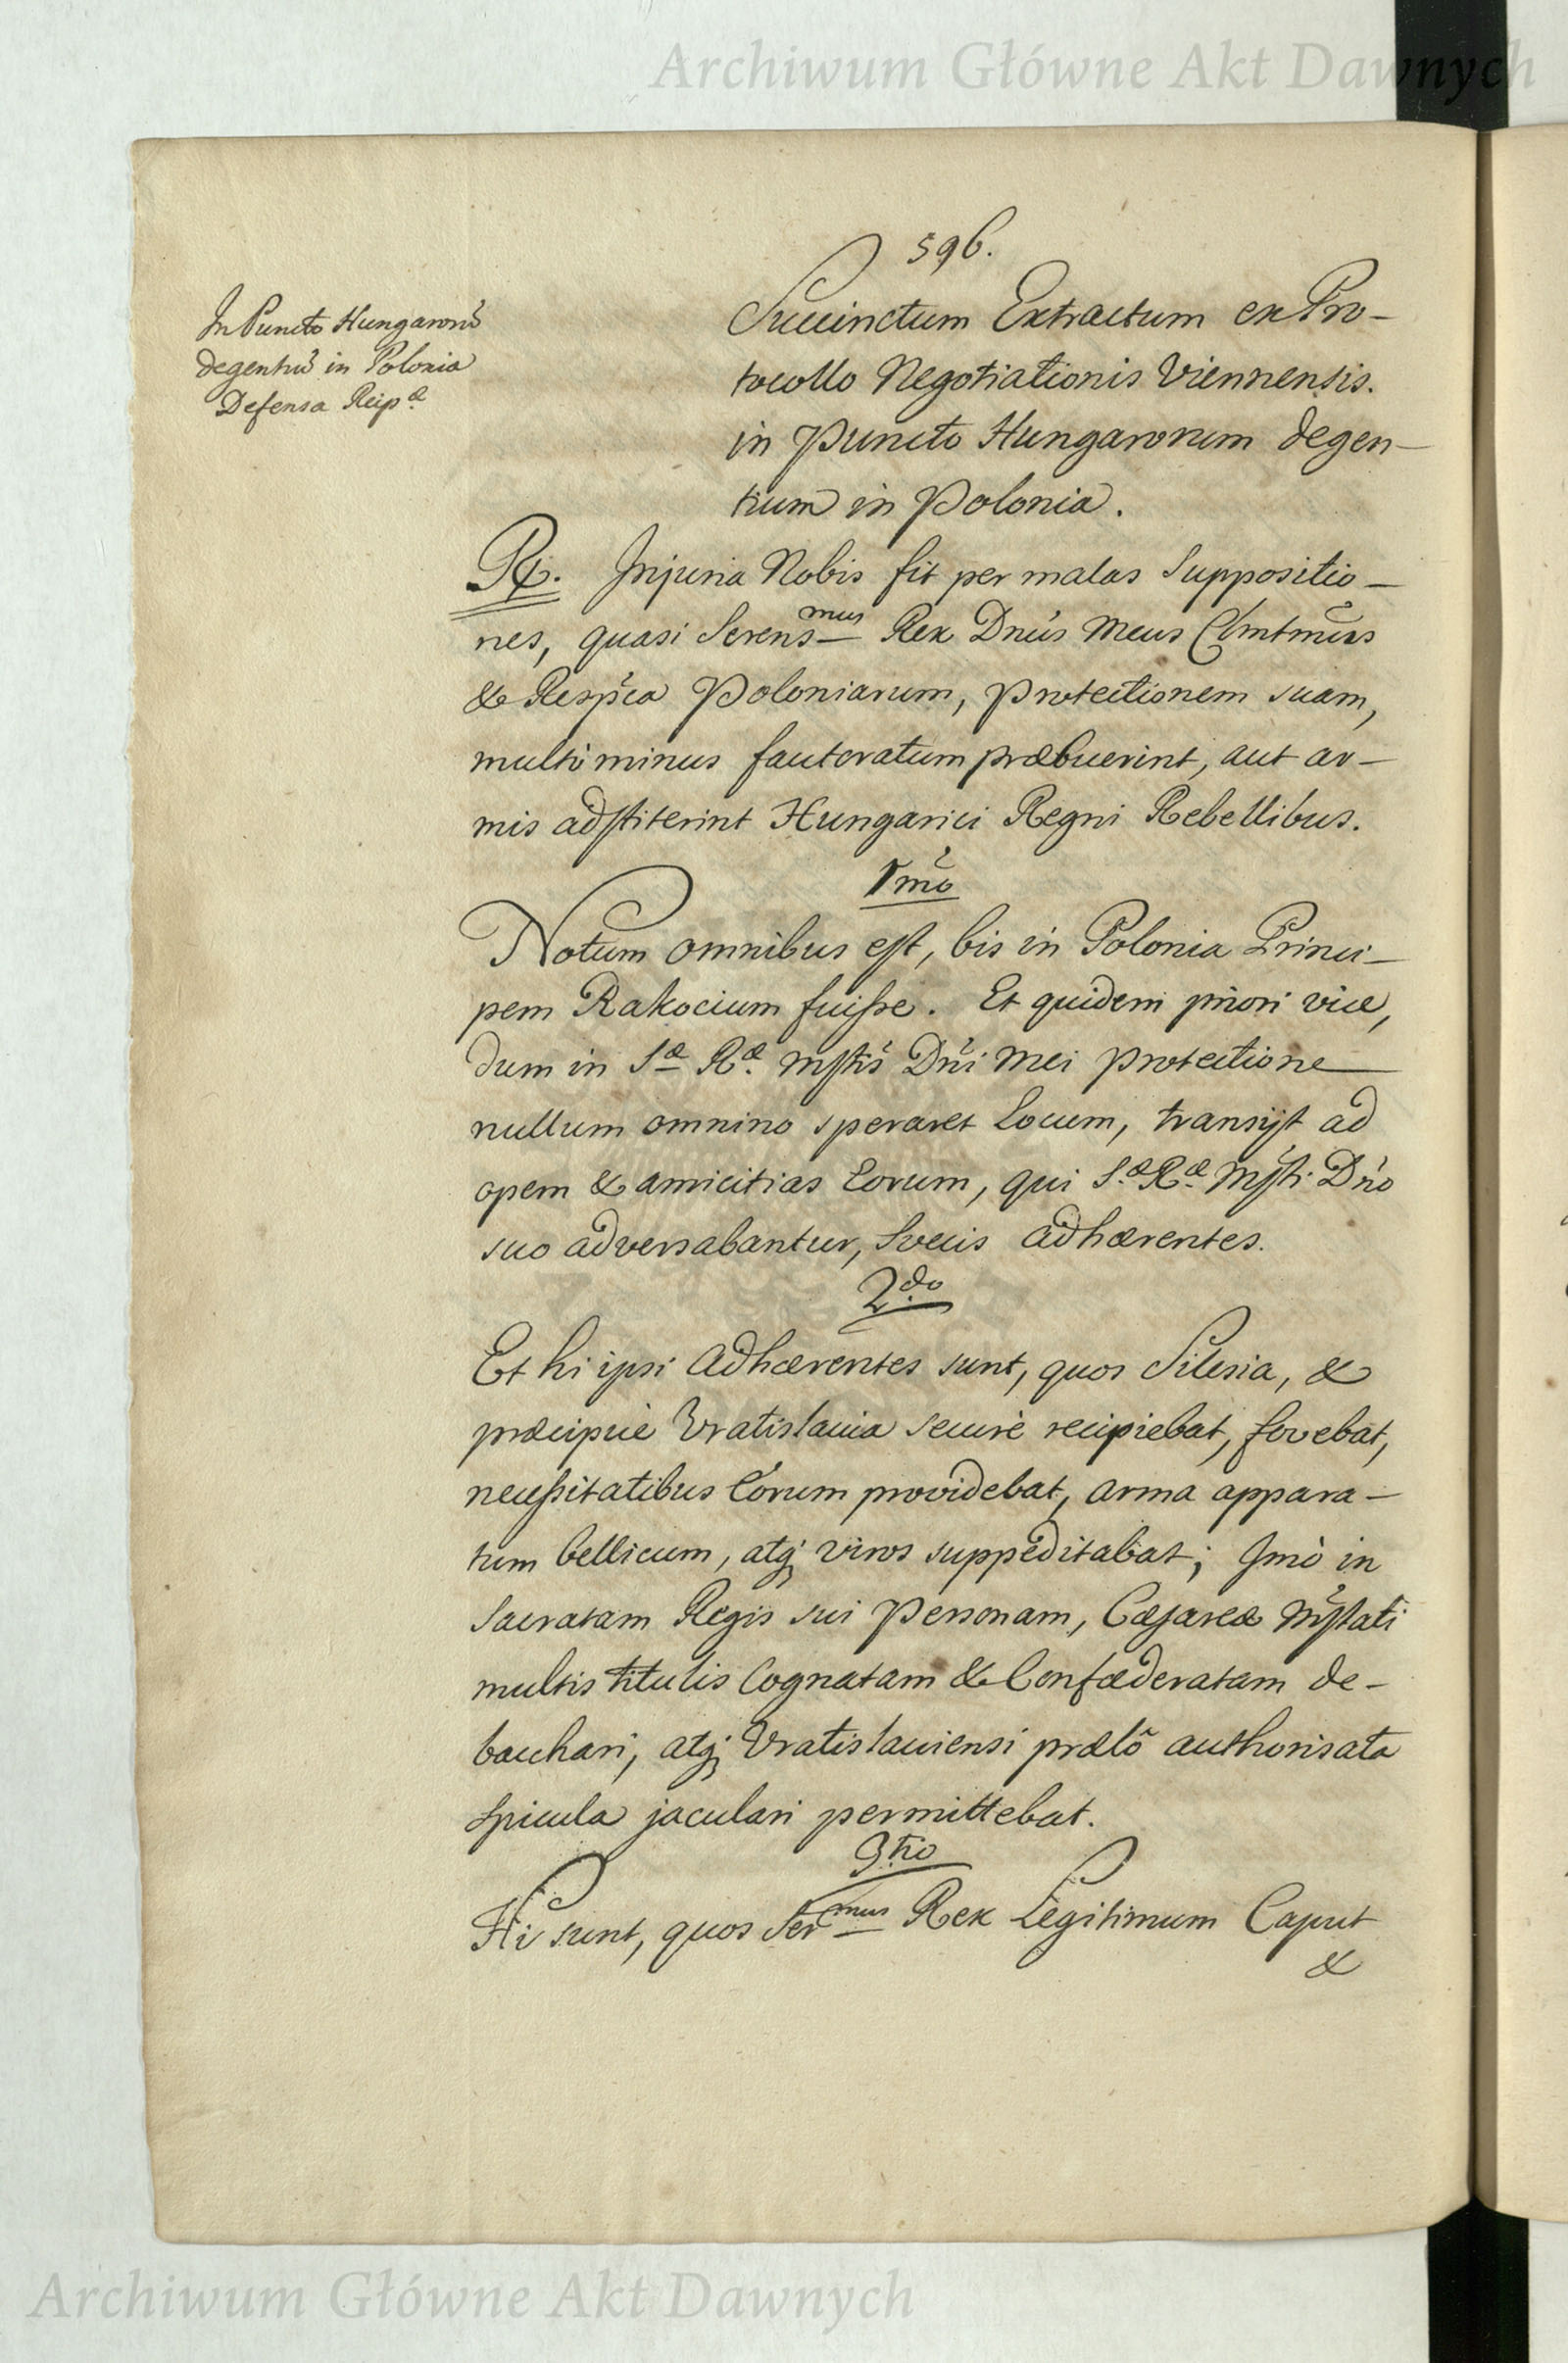 Archiwum Główne Akt Dawnych
596.
In Puncto Hungarorũ
degentiũ in Polonia
Defensa Reipae
Succinctum Extractum ex Pro-
tocollo Negotiationis Viennensis.
in Puncto Hungarorum degen-
tium in Polonia.
Rx. Injuria Nobis fit per malas Suppositio-
nes, quasi Serensmus Rex Dnus Meus
& Respca Poloniarum, Protectionem suam,
multò minus fautoratum præbuerint, aut ar-
mis adstiterint Hungarici Regni Rebellibus.
1mo
Notum omnibus est, bis in Polonia Princi-
pem Rakocium fuisse. Et quidem priori vice,
dum in Sæ Ræ Mstis Dni Mei Protectione
nullum omnino speraret Locum, transijt ad
opem & amicitias Eorum, qui Sæ Ræ Msti Dno
suo adversabantur, Svecis adhærentes.
2do
Et hi ipsi adhærentes sunt, quos Silesia, &
præcipuè Vratislavia securè recipiebat, fovebat,
necessitatibus Eorum providebat, arma appara-
tum bellicum, atq; viros suppeditabat; Imò in
Sacratam Regis sui Personam, Cæsareæ Mstati
multis titulis Cognatam & Confæderatam de-
bacchari, atq; Vratislaviensi prælô authorisata
spicula jaculari permittebat.
3tio
Hi sunt, quos Sermus Rex Legitimum Caput
&
Archiwum Główne Akt Dawnych